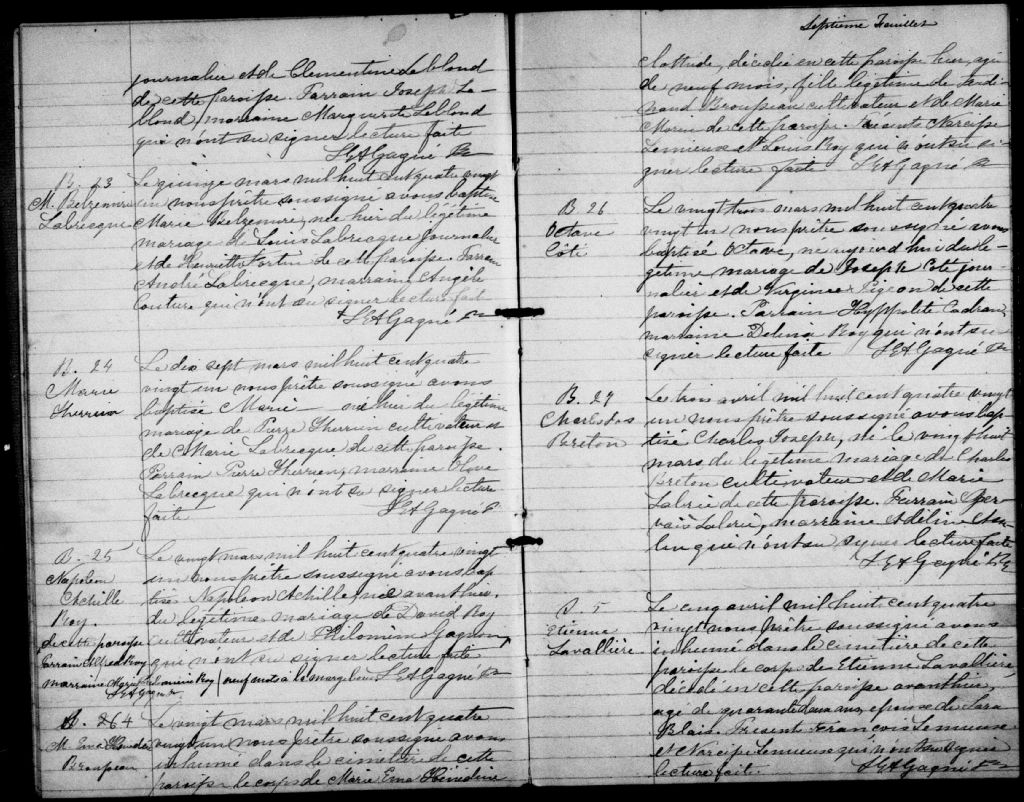 journalier et de Clementine Leblond
de cette paroisse. Parrain Joseph Le-
blond, marraine Marguerite Leblond
qui n'ont su signer lecture faite
LEAGagné Ptr
B. 23
M. Belzemire
Labrecque
Le quinze mars mil huit cent quatre vingt
un nous prêtre soussigné avons baptisé
Marie Belzemire, née hier du légitime
mariage de Louis Labrecque journalier
et de Henriette Fortin de cette paroisse. Parrain
André Labrecque, marraine Angèle
Couture qui n'ont su signer lecture faite
LEAGagné Ptr
B. 24
Marie
Therrien
Le dix sept mars mil huit cent quatre
vingt un nous prêtre soussigné avons
baptisé Marie née hier du légitime
mariage de Pierre Therrien cultivateur et
de Marie Labrecque de cette paroisse.
Parrain Pierre Therrien, marraine Olive
Labrecque qui n'ont su signer lecture
faite LEAGagné Ptr
B. 25
Napoleon
Achille
Roy.
Le vingt mars mil huit cent quatre vingt
un nous prêtre soussigné avons bap
tisé Napoleon Achille, né avanthier,
du légitime mariage de David Roy
cultivateur et de Philomène Gagnon,
de cette paroisse
parrain Alfred Roy
marraine
qui n'ont su signer lecture faite
neuf mots à la marge bons LEAGagné Ptr
LEAGagné
S. 4
M. Ema
Brousseau
Le vingt mars mil huit cent quatre
vingt un nous prêtre soussigné avons
inhumé dans le cimetière de cette
paroisse le corps de Marie Ema
Septième Feuillet
clothilde, décédée en cette paroisse hier, agée
de neuf mois, fille légitime de Ferdi
nand Brousseau cultivateur et de Marie
Morin de cette paroisse. Présents Narcisse
Lemieux et Louis Roy qui n'ont su si
gner lecture faite LEAGagné Ptr
B. 26
Octave
Côté
Le vingt trois mars mil huit cent quatre
vingt un nous prêtre soussigné avons
baptisé Octave, né aujourd'hui du lé
gitime mariage de Joseph Coté jour
nalier et de Virginie Pigeon de cette
paroisse. Parrain Hyppolite Cadran,
marraine Delina Roy qui n'ont su
signer lecture faite LEAGagné Ptr
B. 27
Charles Jos
Breton
Le trois avril mil huit cent quatre vingt
un nous prêtre soussigné avons bap
tisé Charles Joseph, né le vingt huit
mars du légitime mariage de Charles
Breton cultivateur et de Marie
Labrie de cette paroisse. Parrain Ger
vais Labrie, marraine Adéline
qui n'ont su signer lecture faite
LEAGagné Ptr
S. 5
Etienne
Lavallière
Le cinq avril mil huit cent quatre
vingt nous prêtre soussigné avons
inhumé dans le cimetière de cette
paroisse le corps de Etienne Lavallière,
décédé en cette paroisse avanthier,
agé de quarante deux ans, epoux de Sara
Blais. Present François Lemieux
et Narcisse Lemieux qui n'ont su signer
lecture faite. LEAGagné Ptr